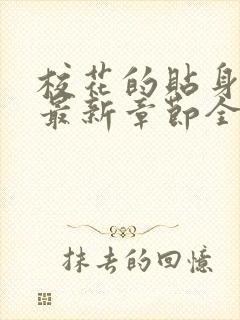 校花的貼身
最新章節全
抹去的回憶